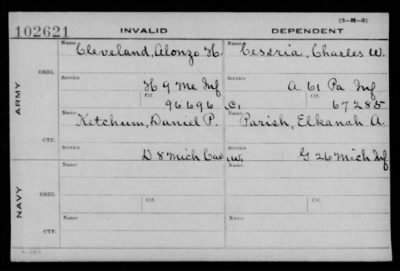 (3-M-3)
102621 INVALID DEPENDENT
ARMY
ORIG.
Name Cleveland, Alonzo H.
Name Cessria, Charles W.
Service H 9 Me Inf
Service A 61 Pa Inf
Ctf. 96696
Ctf. C, 67285
CTF.
Name Ketchum, Daniel P.
Name Parish, Elkanah A.
Service D 8 Mich Cav
W. Service G 26 Mich Inf
NAVY
ORIG.
Name
Name
Service Ctf.
Service Ctf.
CTF.
Name
Name
Service
Service